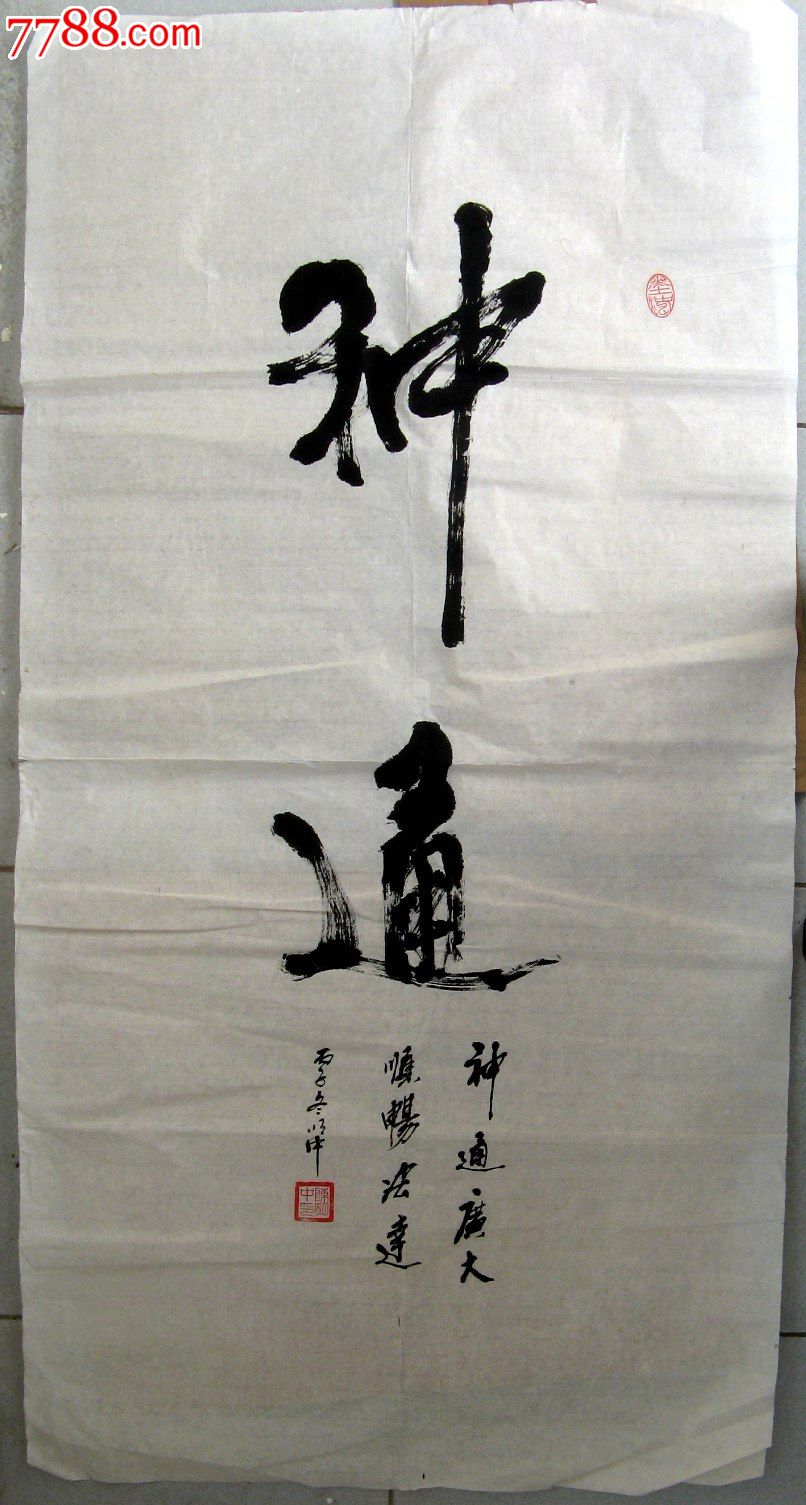 7788.com
神通
神通廣大
順暢法達
丙子冬